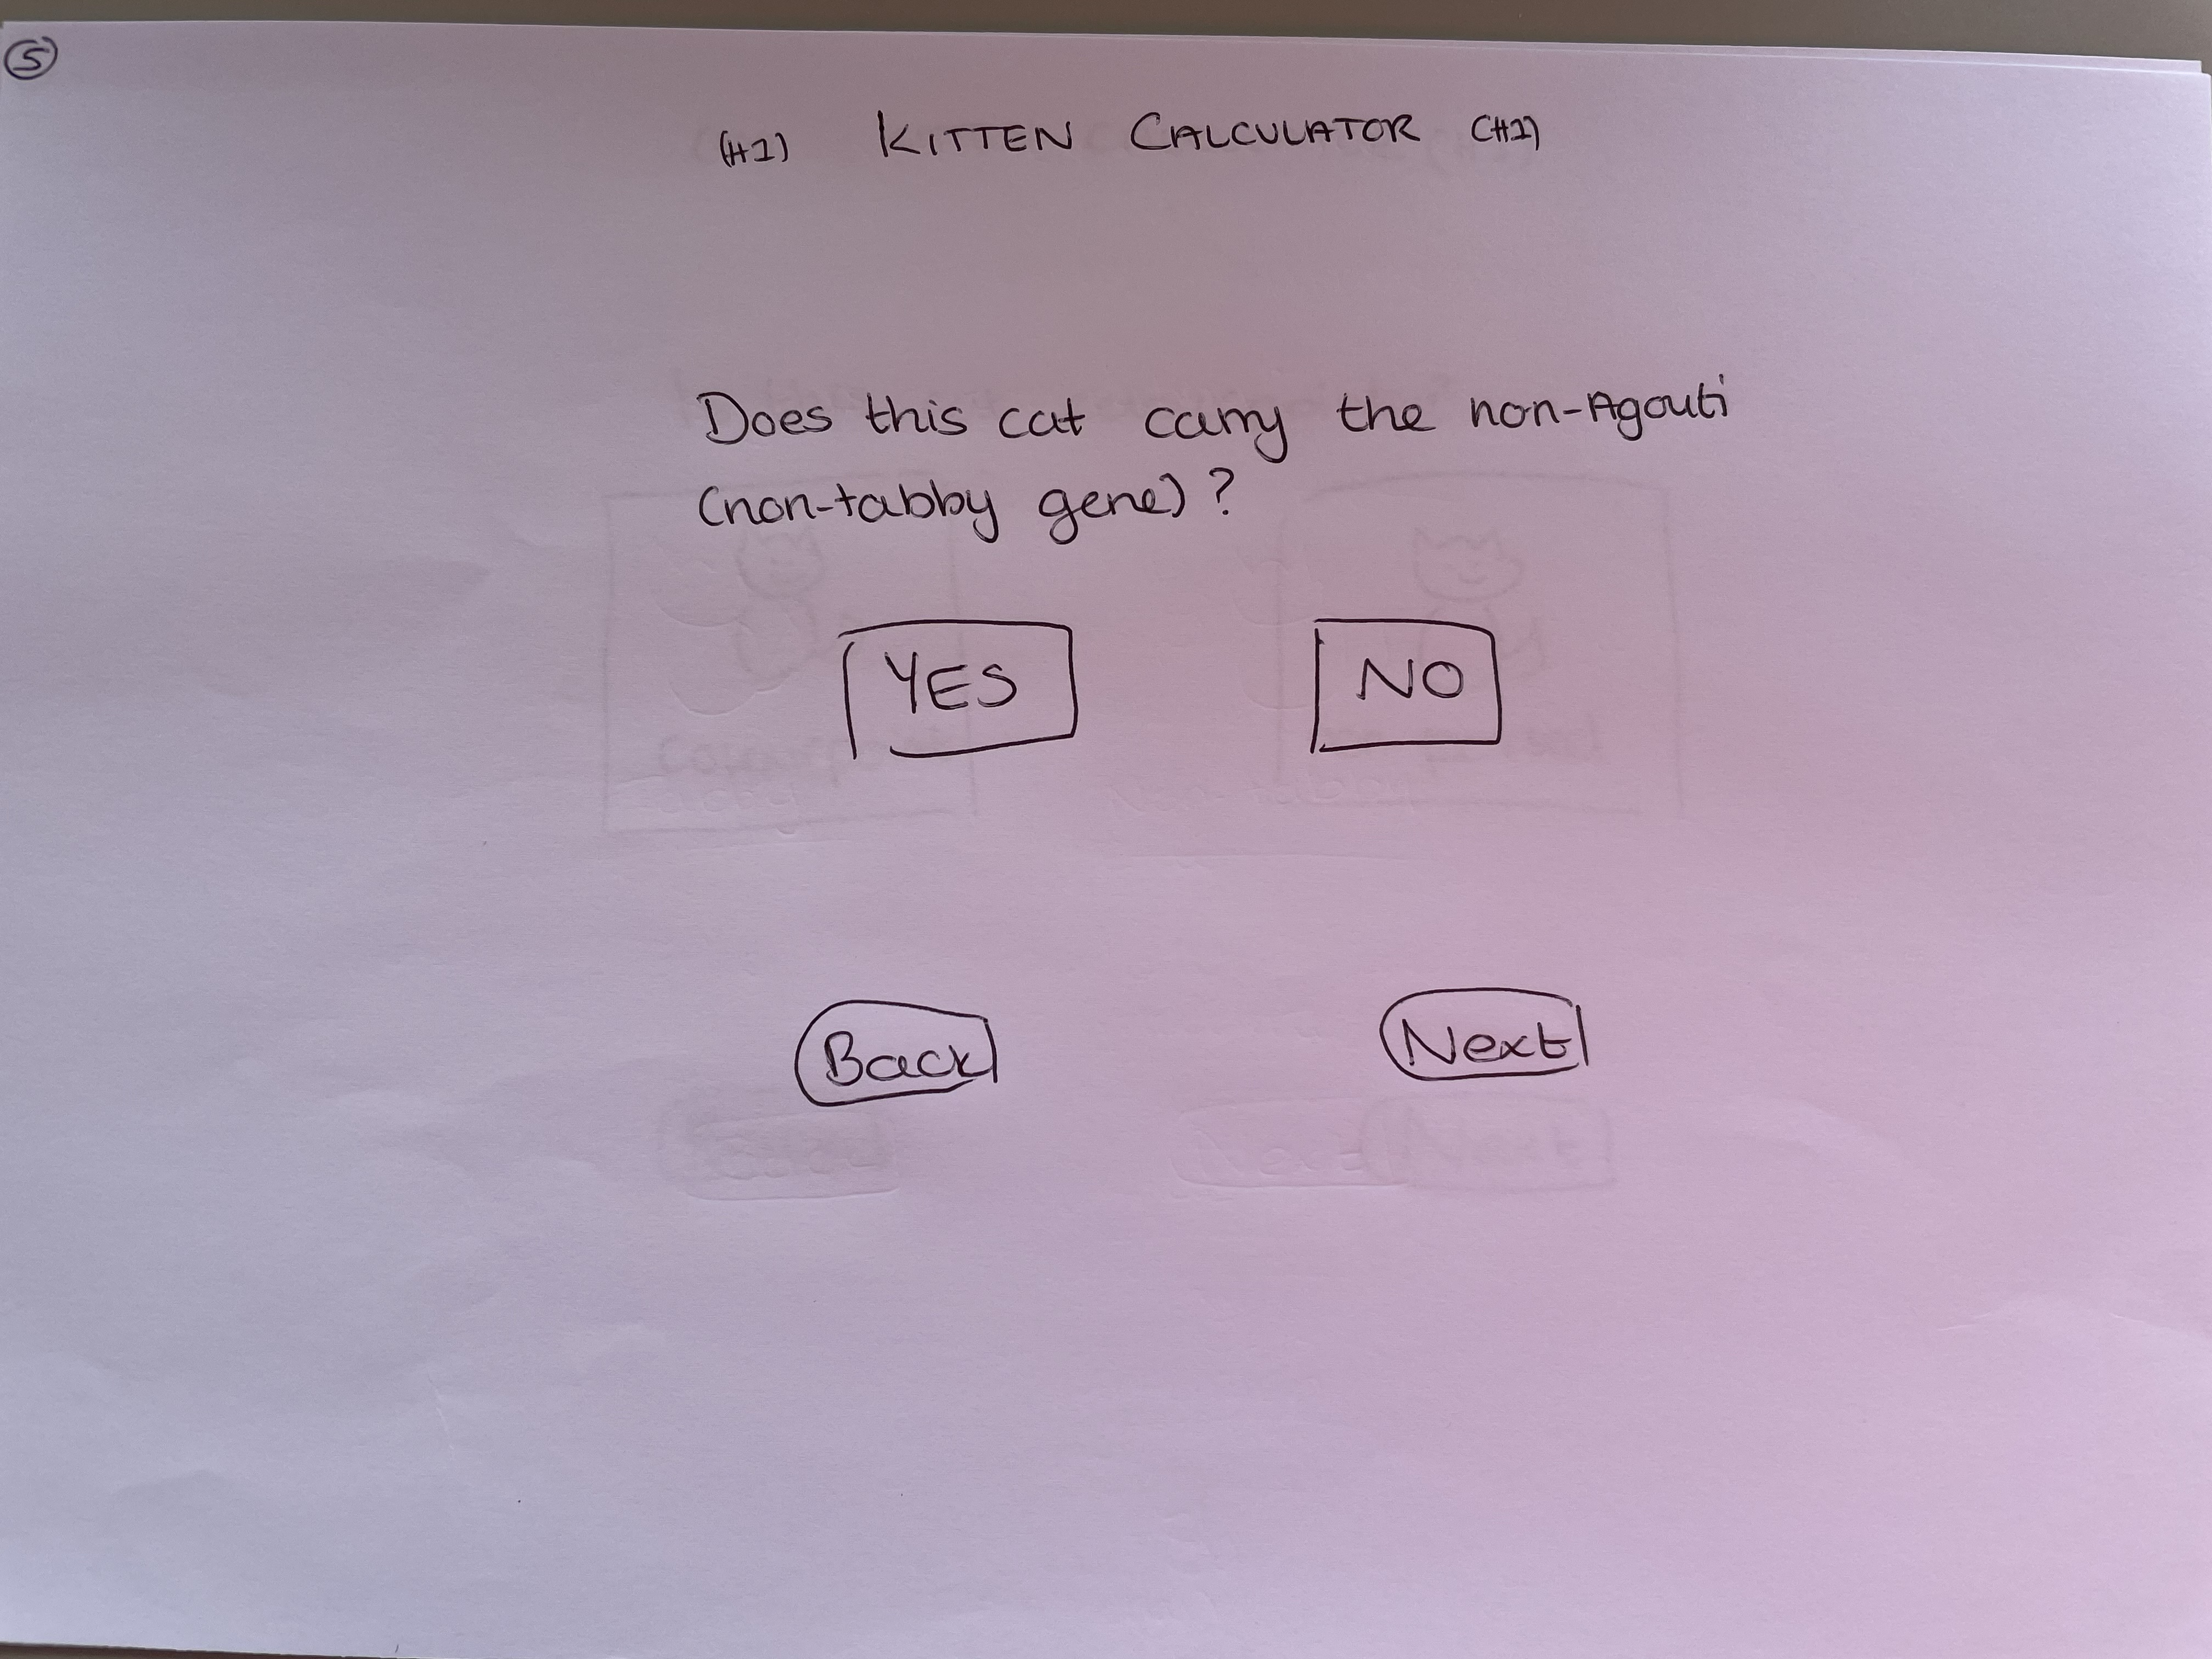 5
(H1) KITTEN CALCULATOR (H1)
Does this cat carry the non-Agouti
(non-tabby gene)?
YES NO
Back Next